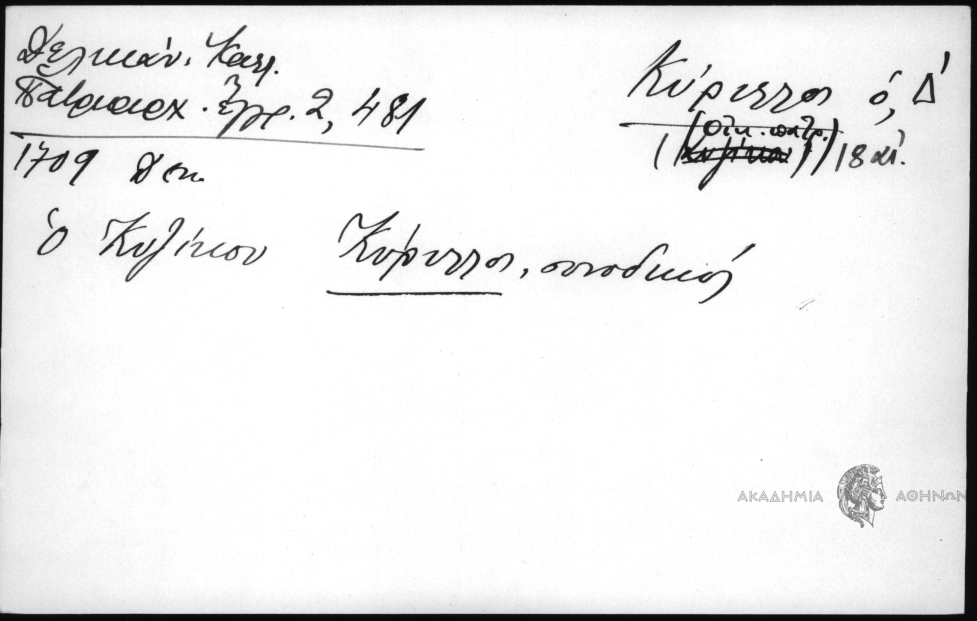 Δελικάν. Καλ.
Πατριαρχ. Ἔγγρ. 2, 481
1709 Δεκ.
Κύριλλος ὁ, Δ΄
(οἰκ. πατρ.)
(Κυζίκου) 18 αἰ.
ὁ Κυζίκου Κύριλλος, συνοδικός
ΑΚΑΔΗΜΙΑ ΑΘΗΝΩΝ